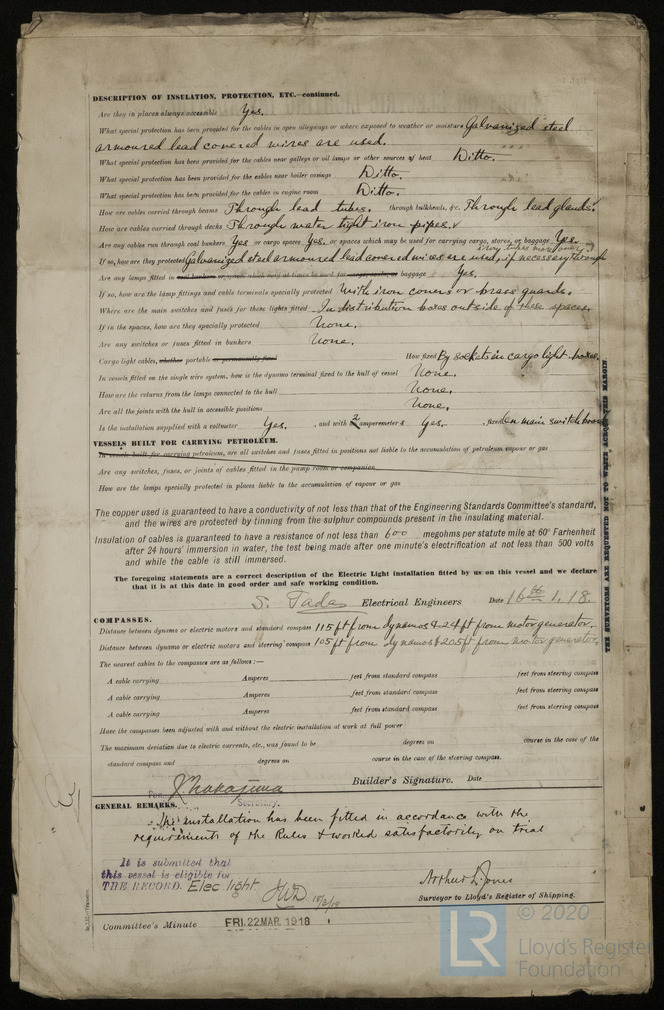 DESCRIPTION OF INSULATION, PROTECTION, ETC.—continued.
Are they in places always accessible Yes.
What special protection has been provided for the cables in open alleyways or where exposed to weather or moisture Galvanized steel
armoured lead covered wires are used.
What special protection has been provided for the cables near galleys or oil lamps or other sources of heat Ditto.
What special protection has been provided for the cables near boiler casings Ditto.
What special protection has been provided for the cables in engine room Ditto.
How are cables carried through beams Through lead tubes. through bulkheads, &c. Through lead glands.
How are cables carried through decks Through water tight iron pipes.
Are any cables run through coal bunkers Yes or cargo spaces Yes. or spaces which may be used for carrying cargo, stores, or baggage Yes.
If so, how are they protected Galvanized steel armoured lead covered wires are used, if necessary through
Are any lamps fitted in coal bunkers or spaces which may at times be used for cargo, coals, or baggage Yes.
If so, how are the lamp fittings and cable terminals specially protected With iron covers or brass guards.
Where are the main switches and fuses for these lights fitted In distribution boxes outside of these spaces.
If in the spaces, how are they specially protected None.
Are any switches or fuses fitted in bunkers None.
Cargo light cables, whether portable or permanently fixed How fixed By sockets in cargo light boxes.
In vessels fitted on the single wire system, how is the dynamo terminal fixed to the hull of vessel None.
How are the returns from the lamps connected to the hull None.
Are all the joints with the hull in accessible positions None.
Is the installation supplied with a voltmeter Yes. , and with 2 amperemeters Yes. , fixed on main switch board
VESSELS BUILT FOR CARRYING PETROLEUM.
In vessels built for carrying petroleum, are all switches and fuses fitted in positions not liable to the accumulation of petroleum vapour or gas
Are any switches, fuses, or joints of cables fitted in the pump room or companion
How are the lamps specially protected in places liable to the accumulation of vapour or gas
The copper used is guaranteed to have a conductivity of not less than that of the Engineering Standards Committee's standard,
and the wires are protected by tinning from the sulphur compounds present in the insulating material.
Insulation of cables is guaranteed to have a resistance of not less than 600 megohms per statute mile at 60° Farhenheit
after 24 hours' immersion in water, the test being made after one minute's electrification at not less than 500 volts
and while the cable is still immersed.
The foregoing statements are a correct description of the Electric Light installation fitted by us on this vessel and we declare
that it is at this date in good order and safe working condition.
S. Tada Electrical Engineers Date 16th 1. 18.
COMPASSES.
Distance between dynamo or electric motors and standard compass 115 ft from dynamos & 24 ft from motor generator.
Distance between dynamo or electric motors and steering compass 105 ft from dynamos & 205 ft from motor generator.
The nearest cables to the compasses are as follows:—
A cable carrying Amperes feet from standard compass feet from steering compass
A cable carrying Amperes feet from standard compass feet from steering compass
A cable carrying Amperes feet from standard compass feet from steering compass
Have the compasses been adjusted with and without the electric installation at work at full power
The maximum deviation due to electric currents, etc., was found to be degrees on course in the case of the
standard compass and degrees on course in the case of the steering compass.
Nakajima Builder's Signature. Date
Secretary.
GENERAL REMARKS.
The installation has been fitted in accordance with the
requirements of the Rules & worked satisfactorily on trial
It is submitted that
this vessel is eligible for
THE RECORD. Elec light
Arthur L. Jones
Surveyor to Lloyd's Register of Shipping.
Committee's Minute FRI. 22 MAR. 1918
THE SURVEYORS ARE REQUESTED NOT TO WRITE ACROSS THIS MARGIN.
© 2020
LR
Lloyd's Register
Foundation